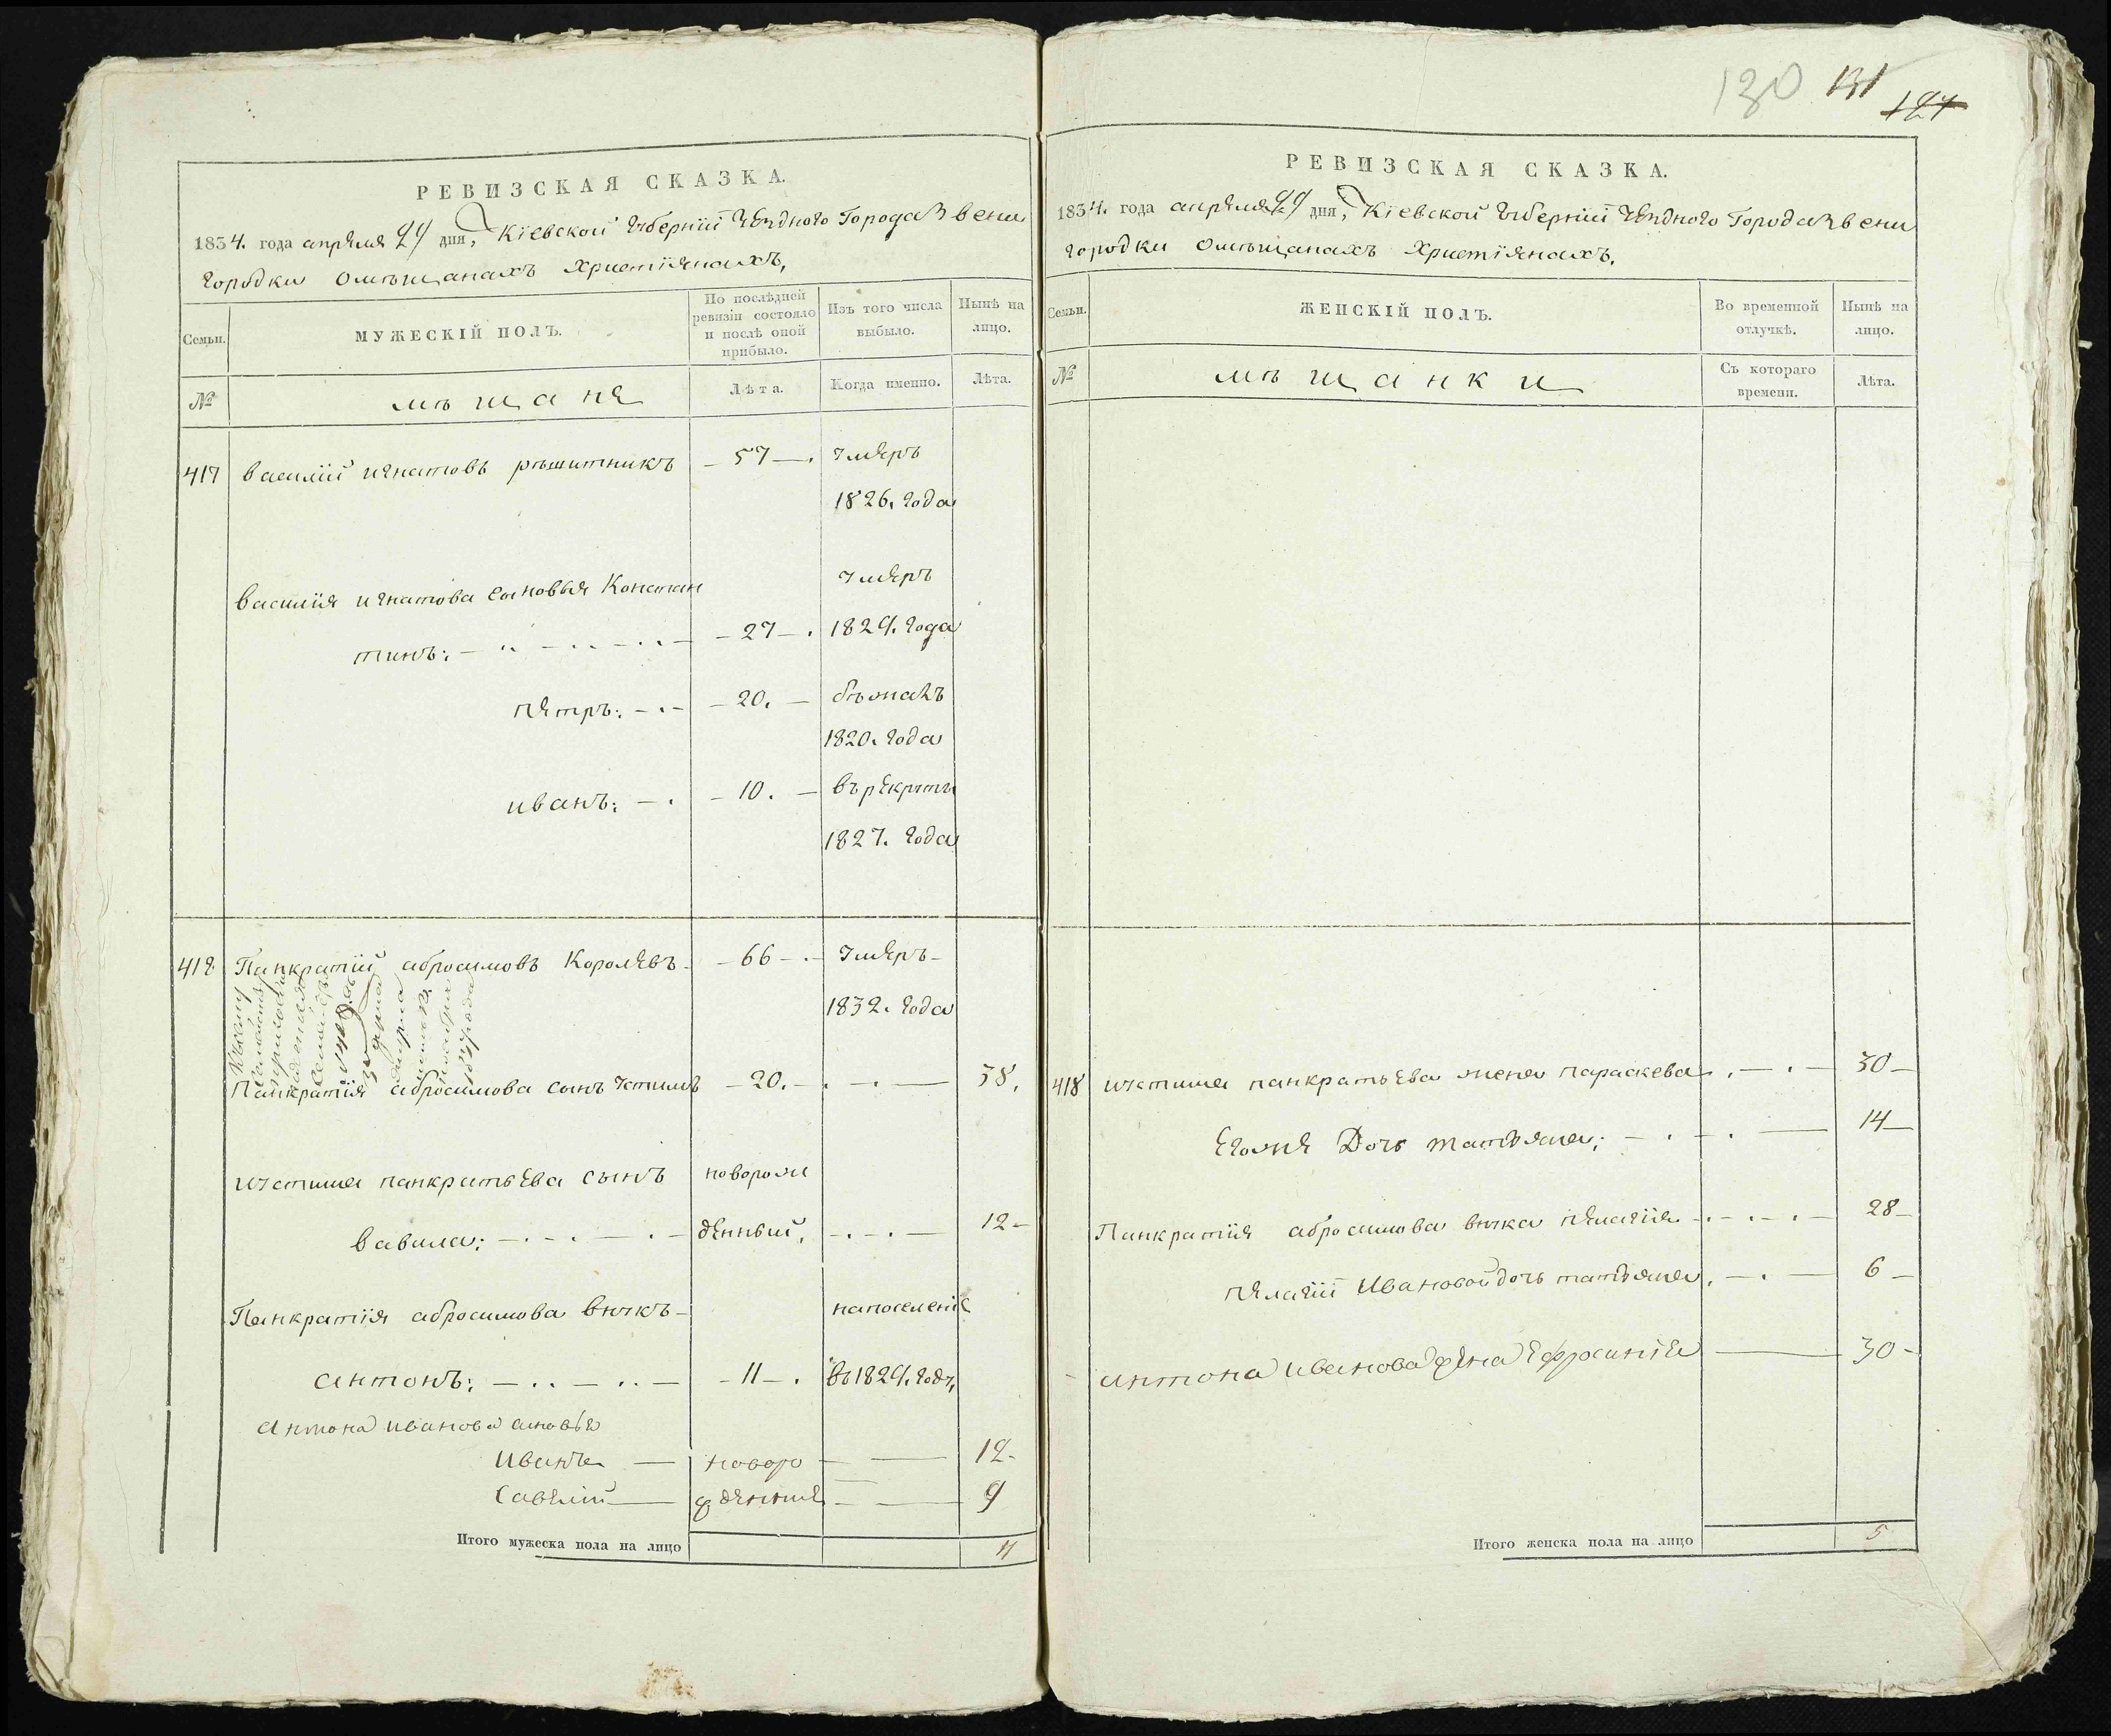 РЕВИЗСКАЯ СКАЗКА.
1834. года апреля 29 дня, Кіевской Губерніи Уездного Города Звени
городки омѣщанахъ Христіянахъ,
Семьи.
МУЖЕСКІЙ ПОЛЪ.
По послѣдней ревизіи состояло и послѣ оной прибыло.
Изъ того числа выбыло.
Нынѣ на лицо.
№
мѣщане
Лѣта.
Когда именно.
Лѣта.
417 василий игнатовъ рѣшитникъ — 57 —. умеръ
1826. года
василия игнатова сыновья Констан умеръ
тинъ: — 27 —. 1829. года
петръ: — 20. — бѣжалъ
1820. года
иванъ: — 10. — в рекруты
1827. года
418 Панкратий абросимовъ Королевъ — 66 — умеръ —
1832. года
Панкратия абросимова сынъ устимъ — 20. — 38.
устима панкратьева сынъ новорож
вавила: — денный, — 12 —
Панкратия абросимова внукъ — напоселеніе
антонъ: — 11 —. в 1829. году,
Антона иванова сыновья
иванъ — новоро — 12 -
Савелий — жденные — 9
Итого мужеска пола на лицо 4
130 131 127
РЕВИЗСКАЯ СКАЗКА.
1834. года апреля 29 дня, Кіевской Губерніи Уездного Города Звени
городки омѣщанахъ Христіянахъ,
Семьи.
ЖЕНСКІЙ ПОЛЪ.
Во временной отлучкѣ.
Нынѣ на лицо.
№
мѣщанки
Съ котораго времени.
Лѣта.
418 устима панкратьева жена параскева — 30 —
Егожѣ Дочь татьяна: — 14 —
Панкратия абросимова внука пелагия — 28 —
пелагии Ивановой дочь татьяна. — 6 —
антона иванова жена Ефросиния — 30 -
Итого женска пола на лицо 5